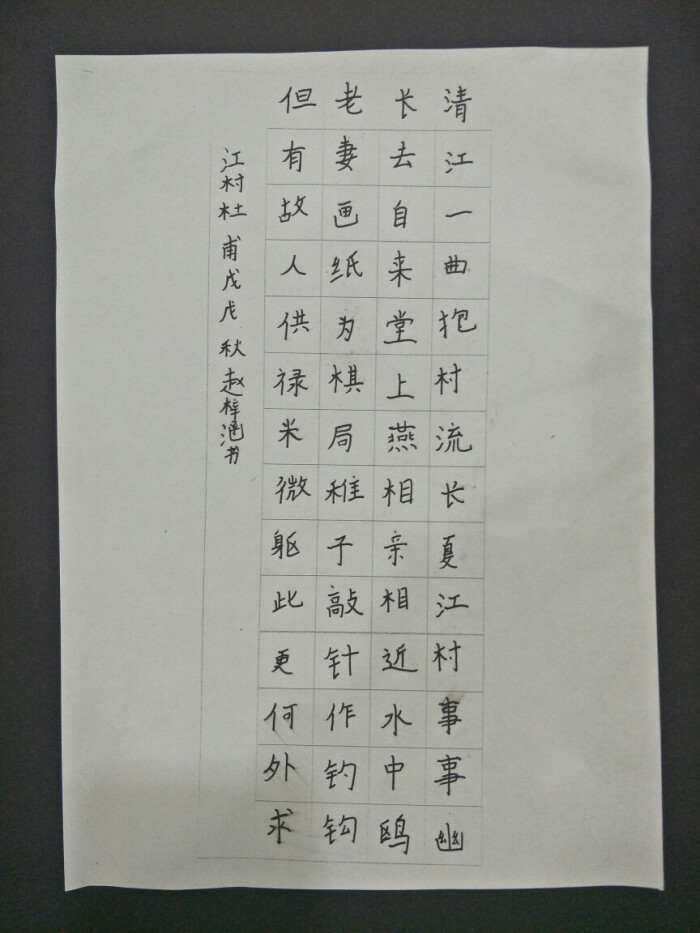 清江一曲抱村流长夏江村事事幽
长去自来堂上燕相亲相近水中鸥
老妻画纸为棋局稚子敲针作钓钩
但有故人供禄米微躯此更何外求
江村杜甫戊戌秋赵梓涵书